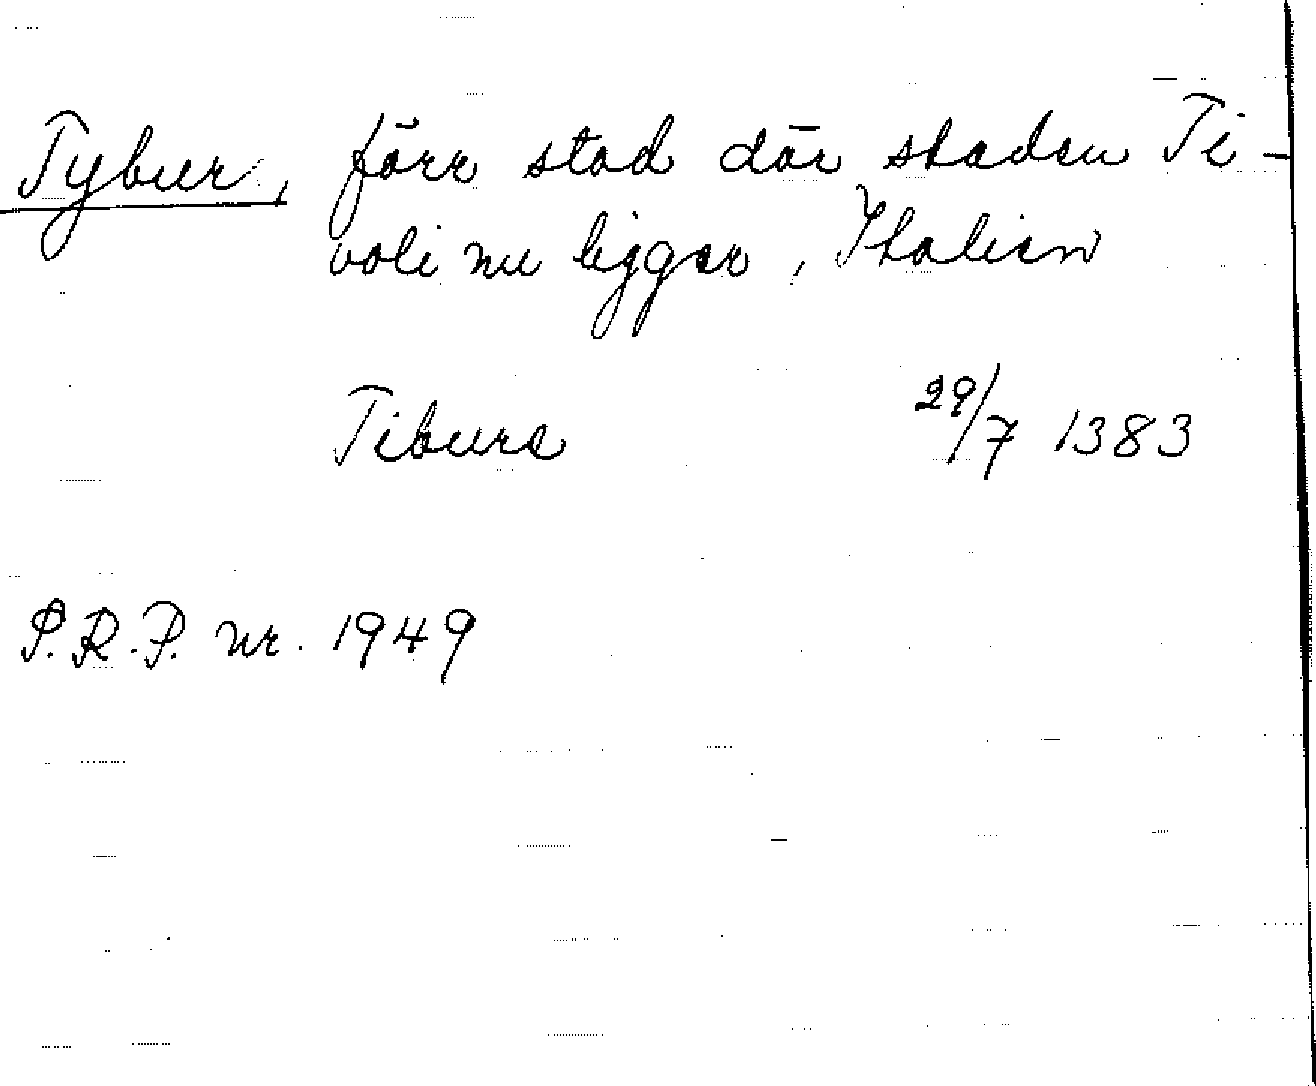 Tybur, förr stad där staden Ti-
voli nu ligger, Italien
Tibure 29/7 1383
P.R.P. nr. 1949